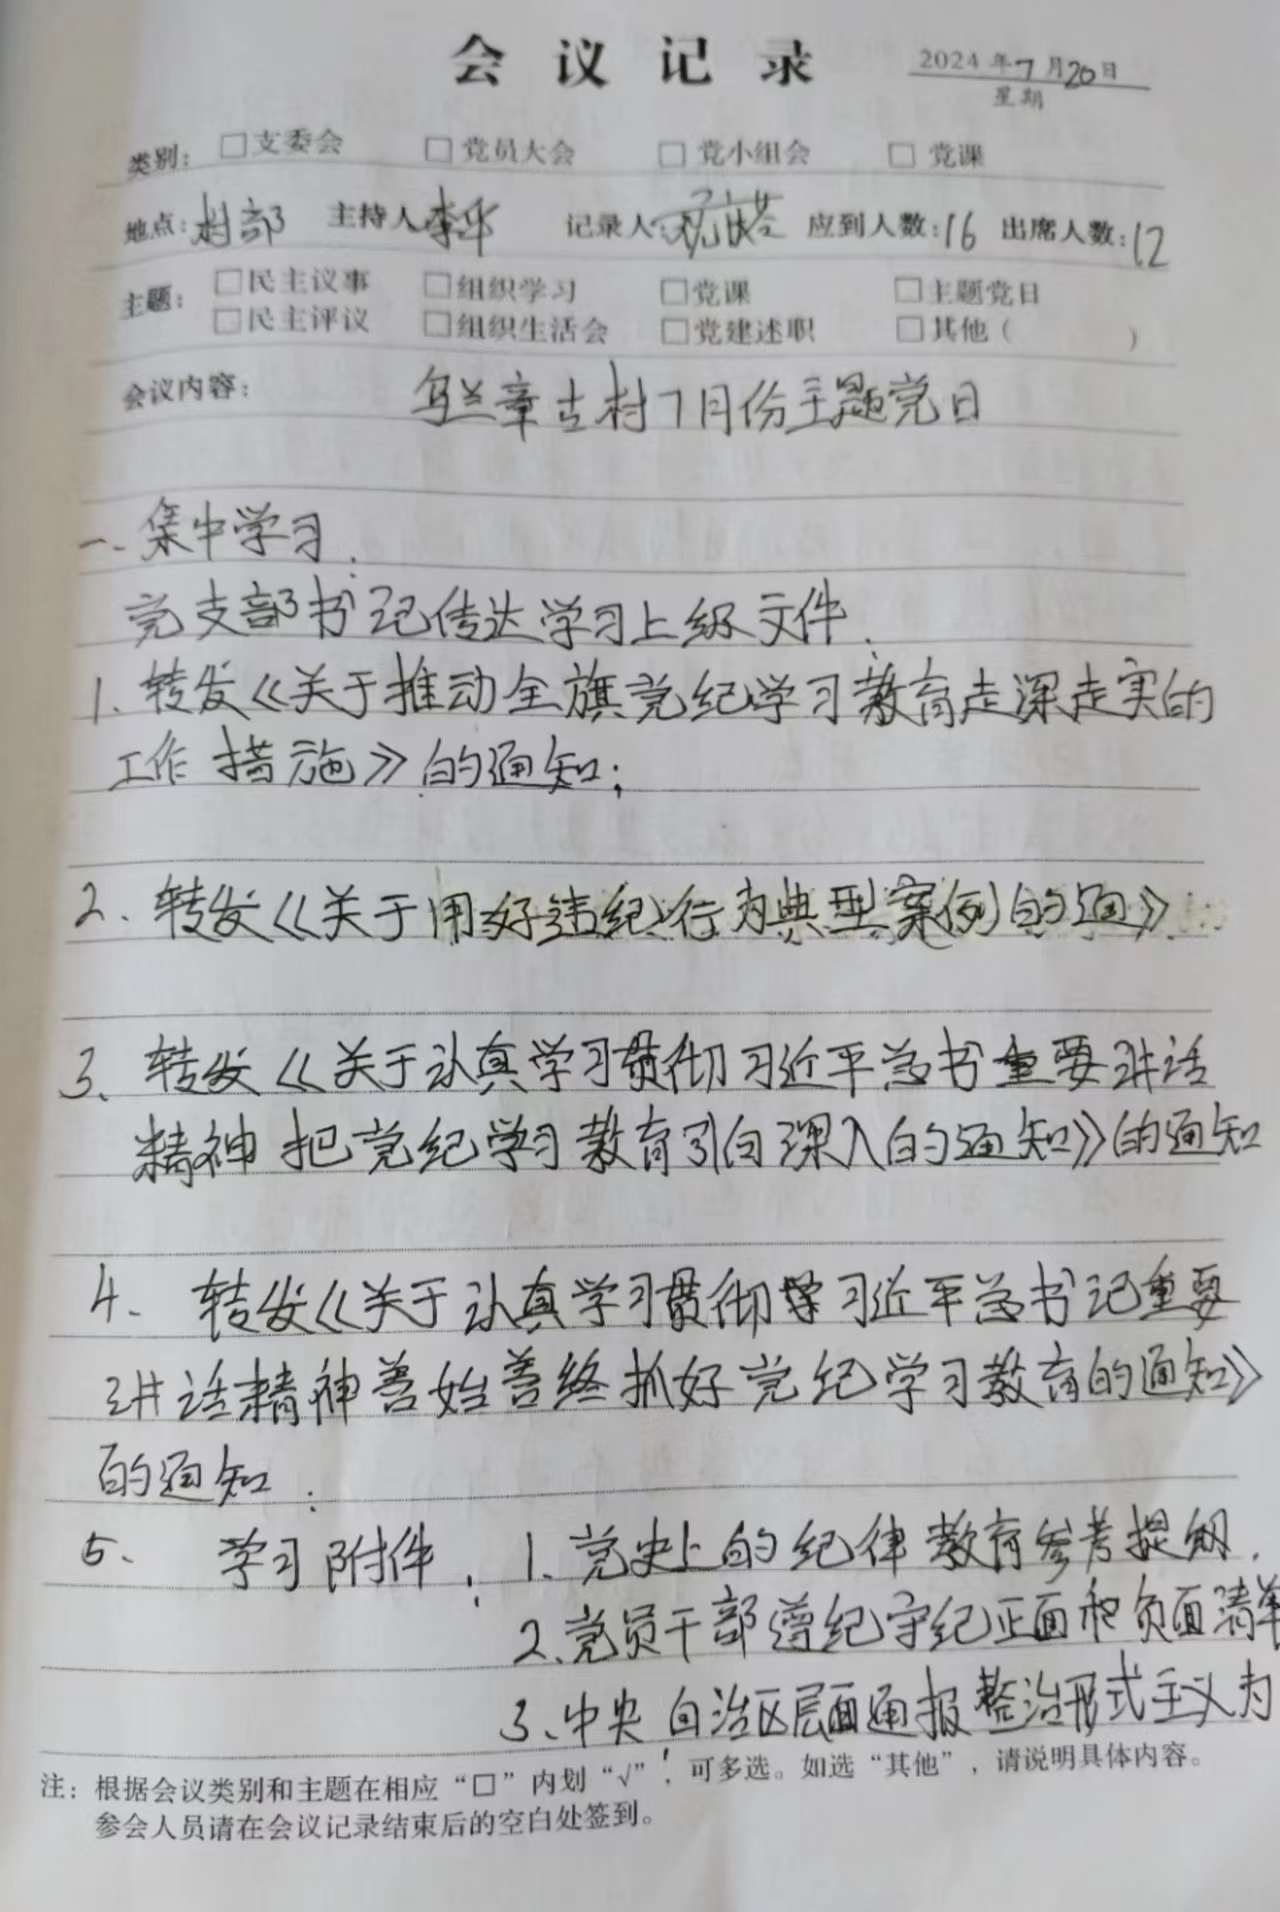 会议记录
2024年7月20日
星期
类别：□支委会 □党员大会 □党小组会 □党课
地点：村部 主持人李华 记录人 应到人数：16 出席人数：12
主题：□民主议事 □组织学习 □党课 □主题党日
□民主评议 □组织生活会 □党建述职 □其他（ ）
会议内容： 乌兰章古村7月份主题党日
一、集中学习：
党支部书记传达学习上级文件：
1、转发《关于推动全旗党纪学习教育走深走实的
工作措施》的通知；
2、转发《关于用好违纪行为典型案例的通》
3、转发《关于认真学习贯彻习近平总书重要讲话
精神把党纪学习教育引向深入的通知》的通知
4、转发《关于认真学习贯彻学习近平总书记重要
讲话精神善始善终抓好党纪学习教育的通知》
的通知：
5、学习附件：1、党史上的纪律教育参考提纲.
2、党员干部遵纪守纪正面和负面清单
3、中央自治区层面通报整治形式主义为
注：根据会议类别和主题在相应“□”内划“√”，可多选。如选“其他”，请说明具体内容。
参会人员请在会议记录结束后的空白处签到。